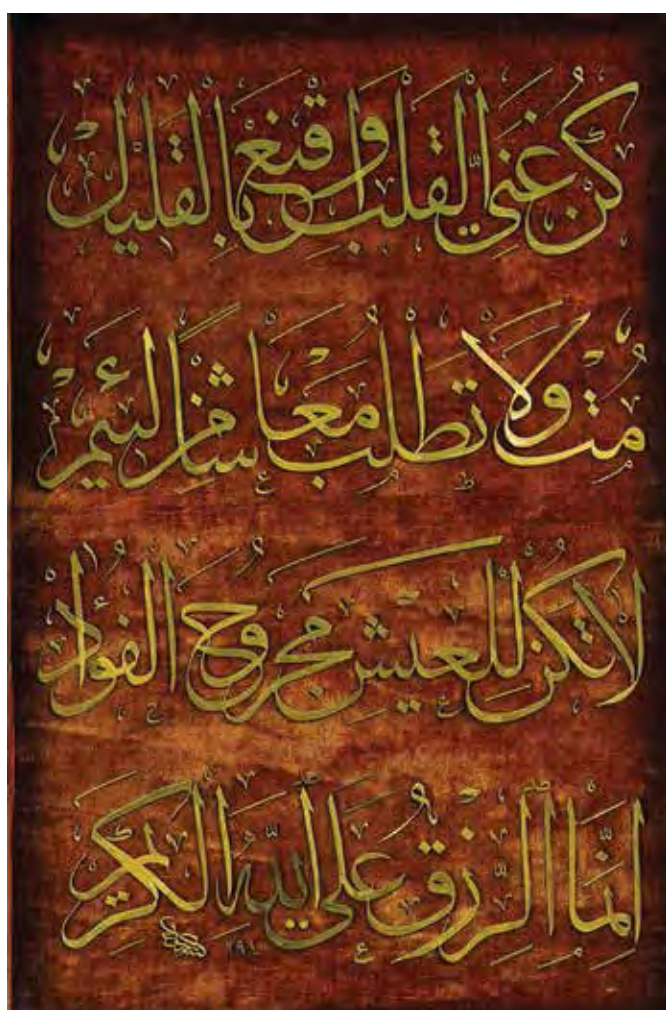 كُنْ غَنِيَّ الْقَلْبِ وَاقْنَعْ بِالْقَلِيلْ
مُتْ وَلَا تَطْلُبْ مَعَاشًا مِنْ لَئِيمْ
لَا تَكُنْ لِلْعَيْشِ مَجْرُوحَ الْفُؤَادْ
إِنَّمَا الرِّزْقُ عَلَى اللهِ الْكَرِيمْ